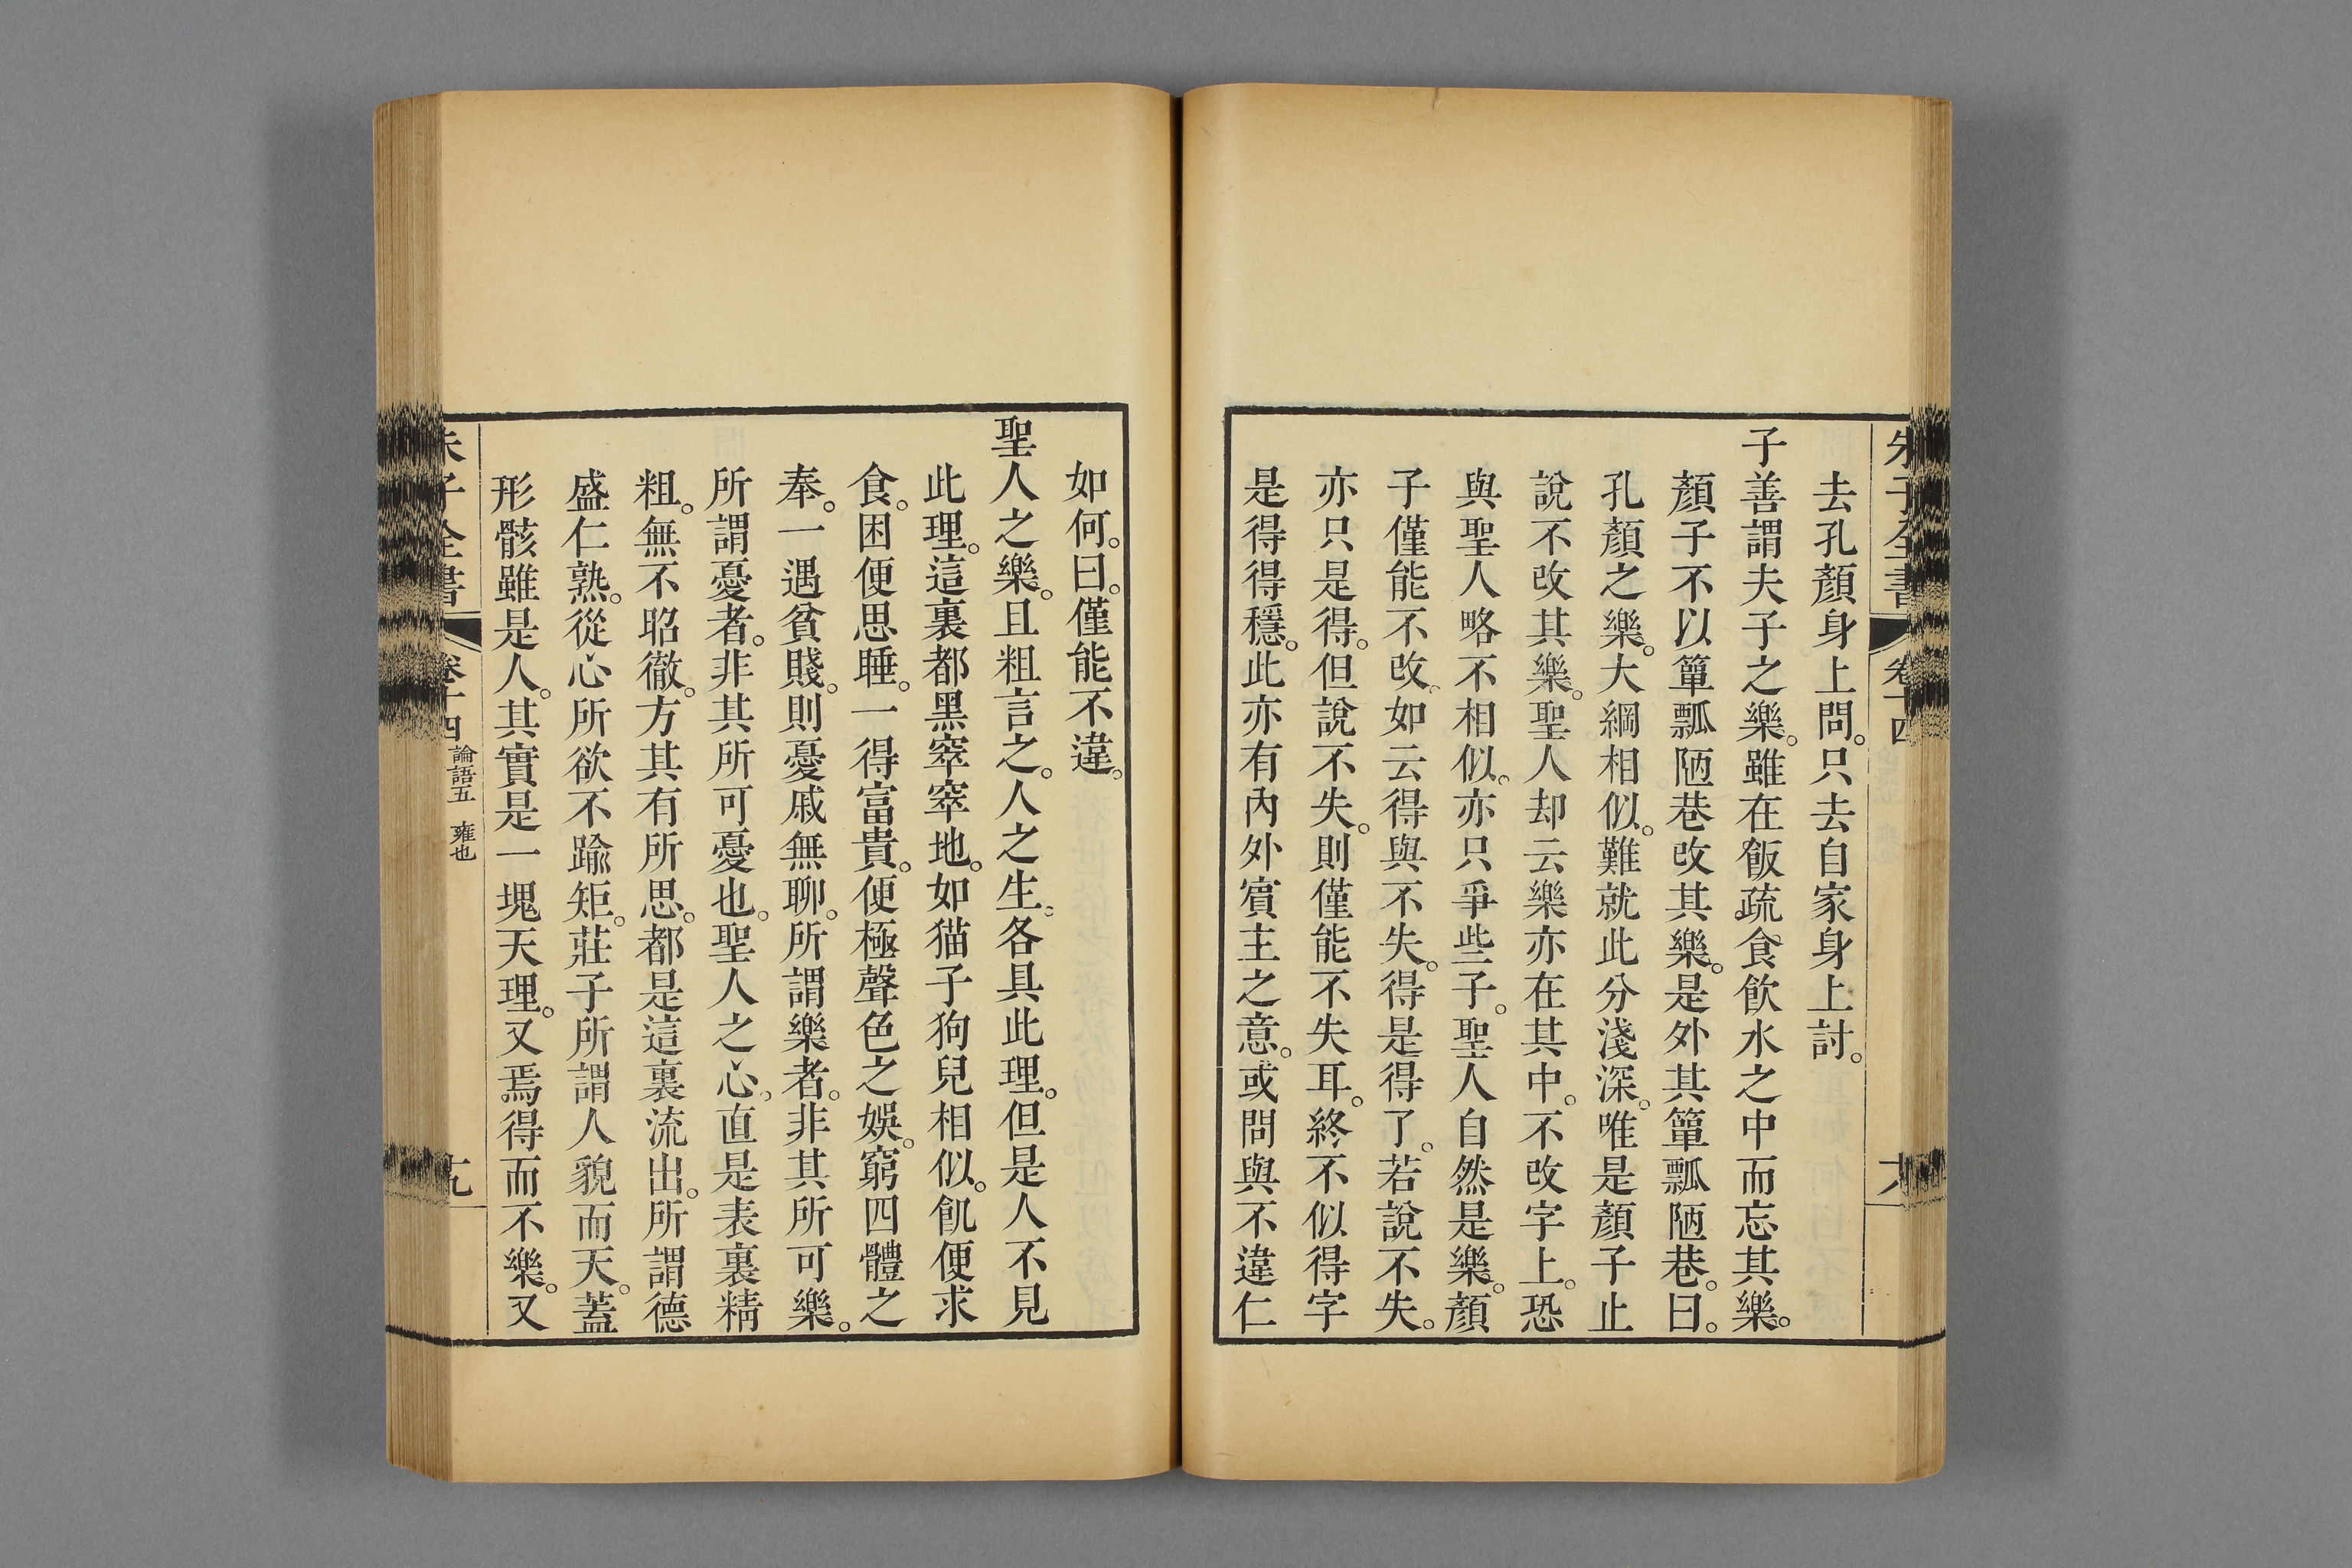 朱子全書 卷十四
去孔顏身上問。只去自家身上討。
子善謂夫子之樂。雖在飯疏食飲水之中而忘其樂。
顏子不以簞瓢陋巷改其樂。是外其簞瓢陋巷。曰。
孔顏之樂。大綱相似。難就此分淺深。唯是顏子止
說不改其樂。聖人却云樂亦在其中。不改字上。恐
與聖人略不相似。亦只爭些子。聖人自然是樂。顏
子僅能不改。如云得與不失。得是得了。若說不失。
亦只是得。但說不失。則僅能不失耳。終不似得字
是得得穩。此亦有內外賓主之意。或問與不違仁
如何。曰。僅能不違。
聖人之樂。且粗言之。人之生。各具此理。但是人不見
此理。這裏都黑窣窣地。如猫子狗兒相似。飢便求
食。困便思睡。一得富貴。便極聲色之娛。窮四體之
奉。一遇貧賤。則憂戚無聊。所謂樂者。非其所可樂。
所謂憂者。非其所可憂也。聖人之心。直是表裏精
粗。無不昭徹。方其有所思。都是這裏流出。所謂德
盛仁熟。從心所欲不踰矩。莊子所謂人貌而天。蓋
形骸雖是人。其實是一塊天理。又焉得而不樂。又
朱子全書 卷十四 論語五 雍也